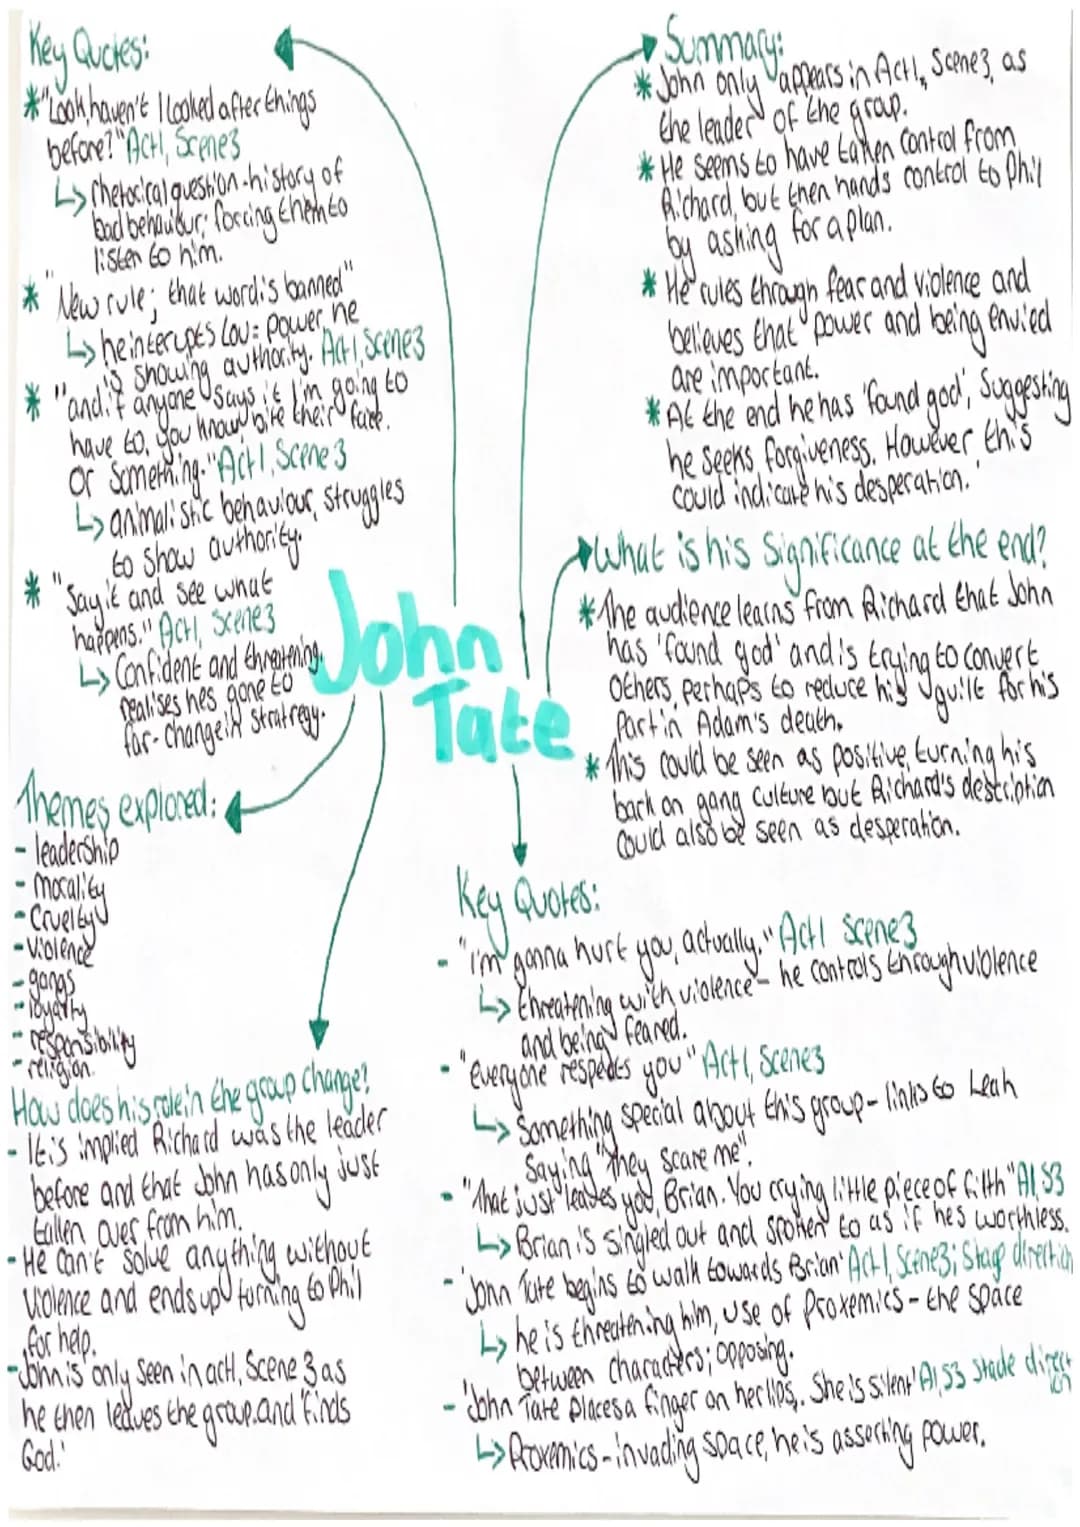 Key Quotes:
*"Look, haven't I looked after things
before?" Act1, Scene3
↳ rhetorical question-history of
bad behaviour; forcing them to
listen to him.
* "New rule; that word is banned"
↳ he interupts Lou = power, he
is showing authority. Act1, Scene3
* "and if anyone says it I'm going to
have to, you know, bite their face.
Or Something." Act1, Scene3
↳ animalistic behaviour, struggles
to show authority.
* "Say it and see what
happens." Act1, Scene3
↳ Confident and threatening,
realises hes gone to
far- change in stratregy.
John
Tate
Themes explored:
- leadership
- morality
- Cruelty
- violence
- gangs
- loyalty
- responsibility
- religion.
How does his role in the group change?
- It is implied Richard was the leader
before and that John has only just
taken over from him.
- He can't solve anything without
violence and ends up turning to Phil
for help.
- John is only seen in act1, Scene 3 as
he then leaves the group and 'finds
God.'
Summary:
* John only appears in Act1, Scene3, as
the leader of the group.
* He seems to have taken control from
Richard, but then hands control to Phil
by asking for a plan.
* He rules through fear and violence and
believes that power and being envied
are important.
* At the end he has 'found god', Suggesting
he seeks forgiveness. However this
could indicate his desperation.
What is his significance at the end?
* The audience learns from Richard that John
has 'found god' and is trying to convert
Others, perhaps to reduce his guilt for his
Part in Adam's death.
* This could be seen as positive, turning his
back on gang culture but Richard's description
could also be seen as desperation.
Key Quotes:
- "I'm gonna hurt you, actually." Act1 Scene3
↳ threatening with violence - he controls through violence
and being feared.
- "everyone respects you" Act1, Scene3
↳ Something special about this group - links to Leah
Saying "they scare me".
- "That just leaves you, Brian. You crying little piece of filth" A1, S3
↳ Brian is singled out and spoken to as if hes worthless.
- 'John Tate begins to walk towards Brian' Act1, Scene3; Stage direction
↳ he is threatening him, use of Proxemics - the space
between characters; opposing.
- 'John Tate places a finger on her lips. She is silent' A1, S3 stade direction
↳ Proxemics - invading space, he is asserting power.